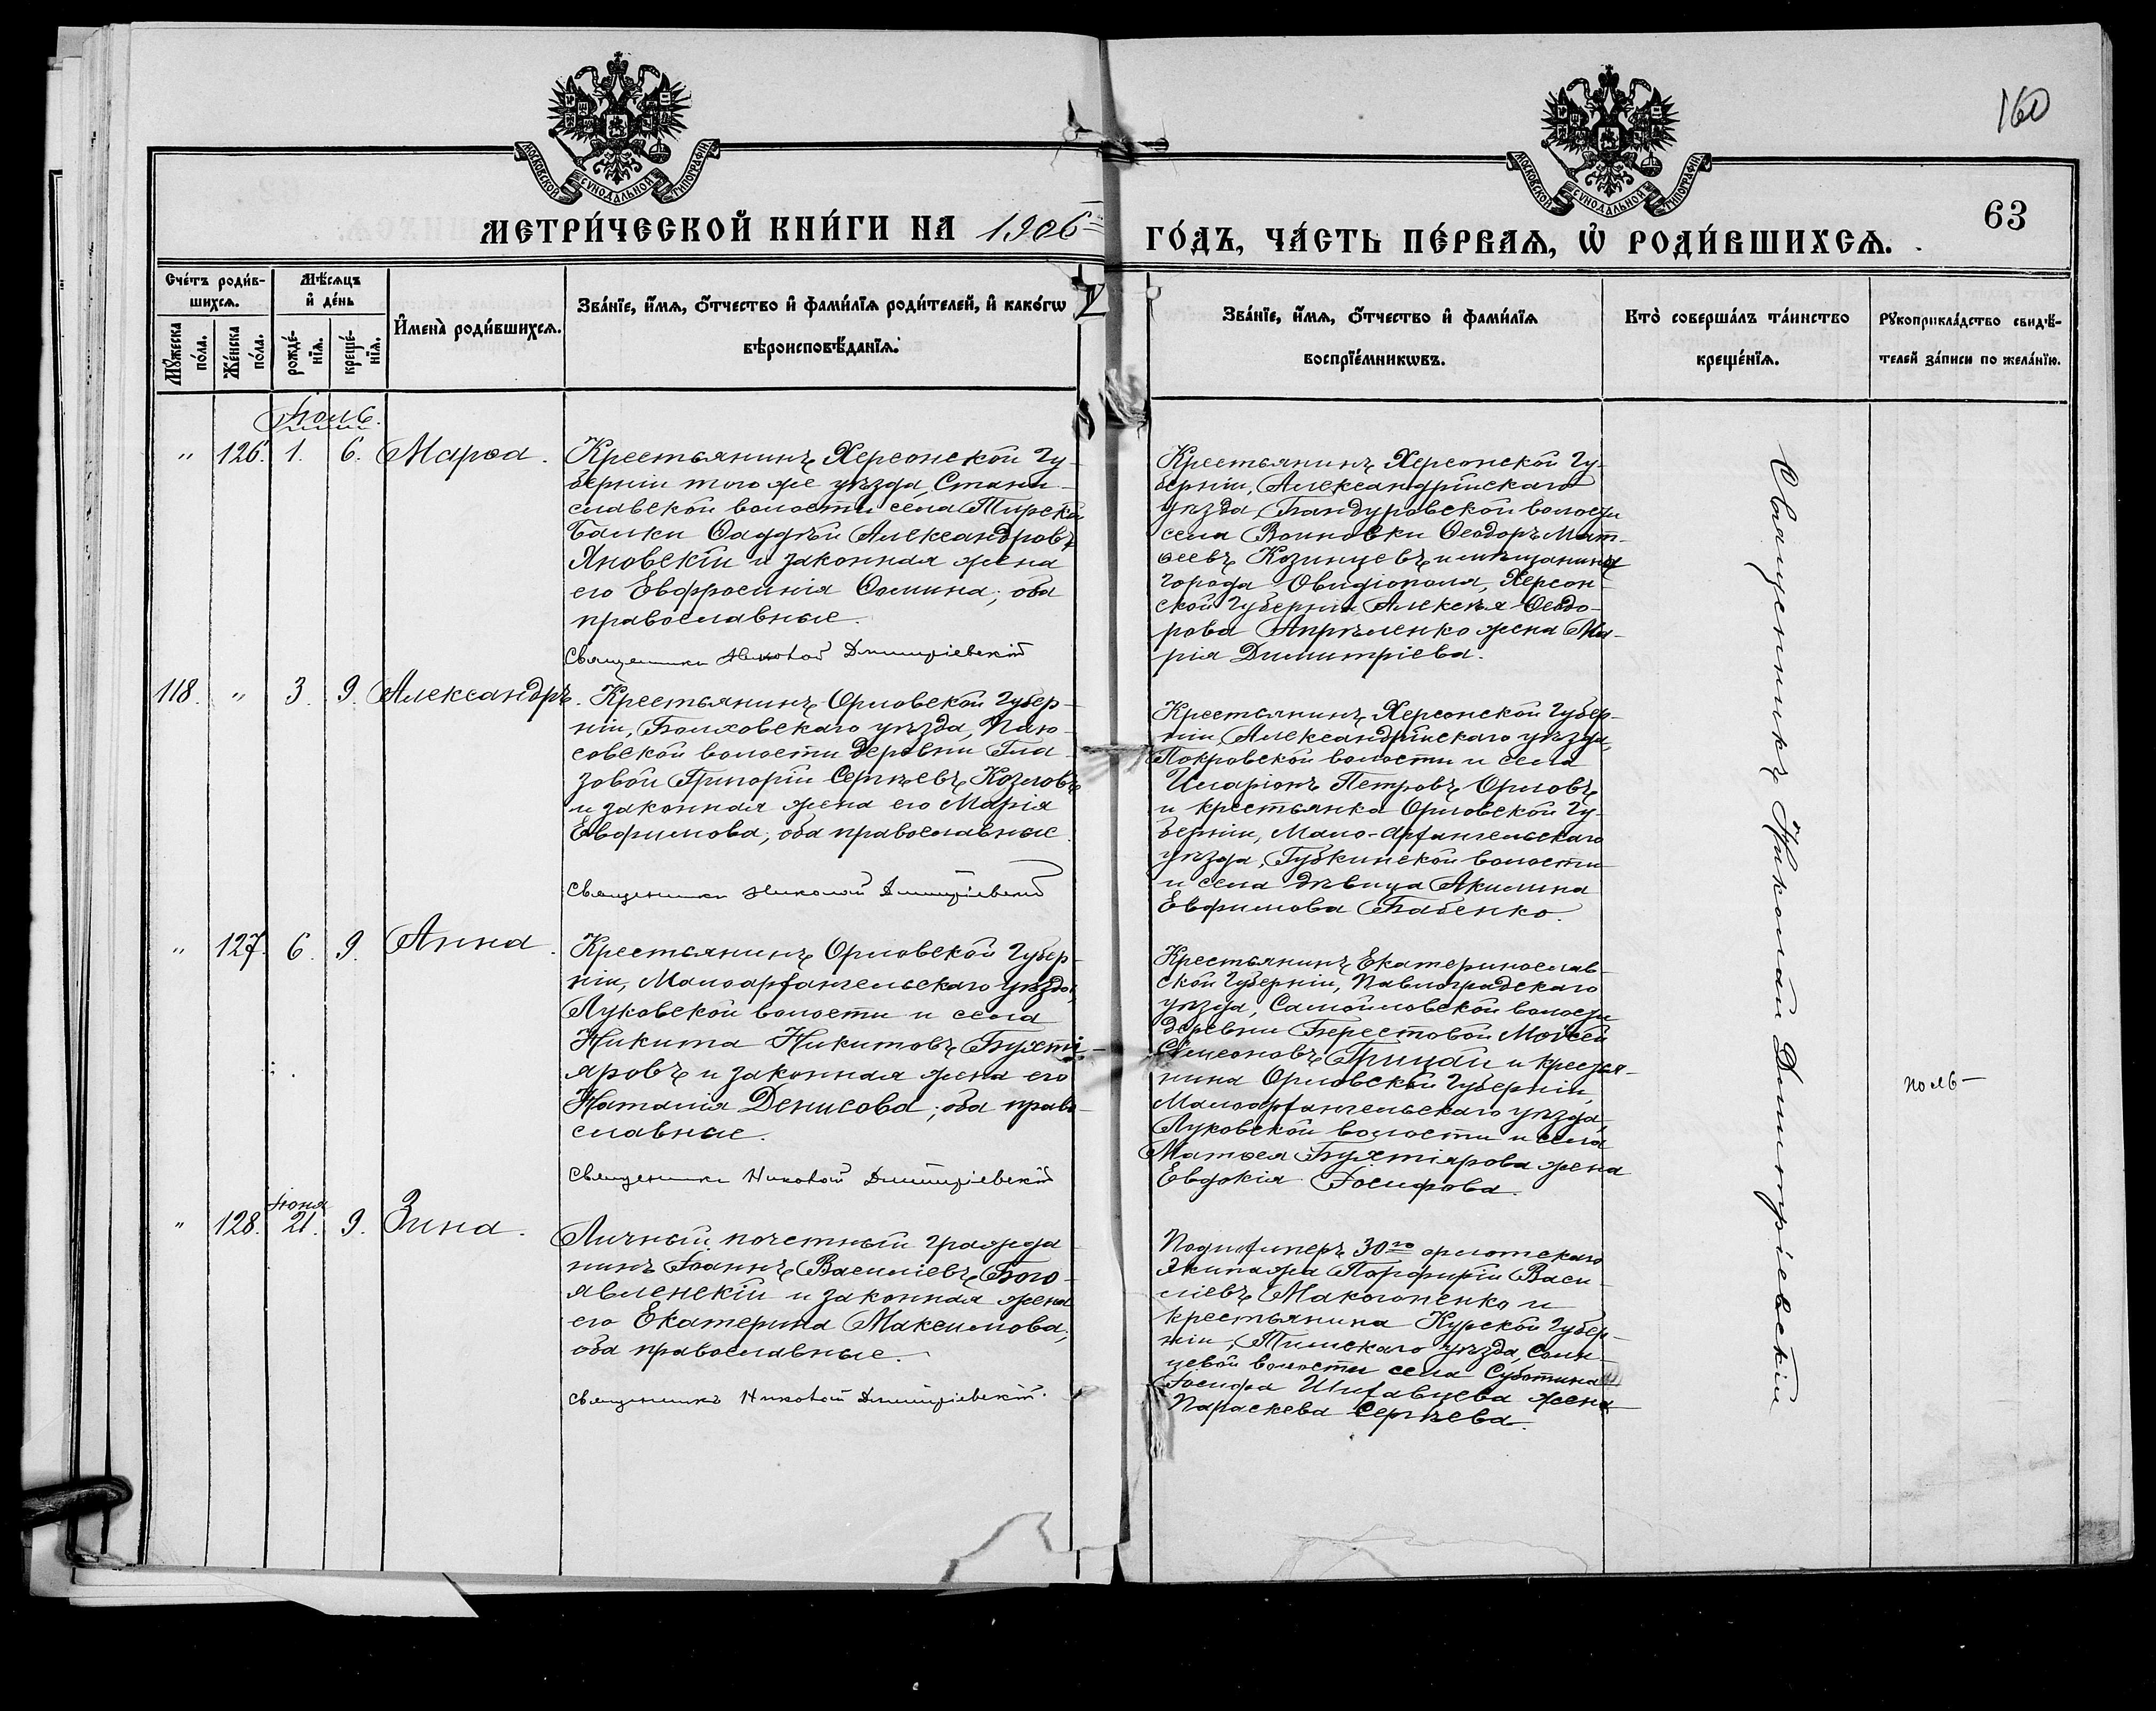 МОСКОВСКОЙ СУНОДАЛЬНОЙ ТИПОГРАФІИ
МОСКОВСКОЙ СУНОДАЛЬНОЙ ТИПОГРАФІИ
160
63
МЕТРИ́ЧЕСКОЙ КНИ́ГИ НА 1906
ГО́ДЪ, ЧА́СТЬ ПЕ́РВАѦ, Ѡ҆ РОДИ́ВШИХСѦ.
Сче́тъ роди́в-
шихсѧ.
Мѣ́сѧцъ
и҆ де́нь
Мꙋ́жеска
по́ла.
Же́нска
по́ла.
рожде́-
нїѧ.
креще́-
нїѧ.
И҆мена̀ роди́вшихсѧ.
Зва́нїе, и҆́мѧ, ѻ҆́тчество и҆ фами́лїѧ роди́телей, и҆ како́гѡ
вѣроисповѣ́данїѧ.
Зва́нїе, и҆́мѧ, ѻ҆́тчество и҆ фами́лїѧ
воспрїе́мникѡвъ.
Кто̀ соверша́лъ та́инство
креще́нїѧ.
Рꙋкоприкла́дство свидѣ́-
телей за́писи по жела́нїю.
Іюль.
" 126. 1. 6. Марѳа.
Крестьянинъ Херсонской Гу-
берніи того же уѣзда, Стани-
славской волости села
Балки Ѳаддѣй Александровъ
Яновскій и законная жена
его Евфросинія Ѳомина; оба
православные.
Священникъ Николай Димитріевскій
Крестьянинъ Херсонской Гу-
берніи, Александрійскаго
уѣзда, Бандуровской волости
села Войновки Ѳеодоръ Мат-
ѳеевъ Козинцевъ и мѣщанина
города Овидіополя, Херсон-
ской Губерніи Алексѣя Ѳеодо-
рова Апрѣленко жена Ма-
рія Димитріева.
118. " 3. 9. Александръ.
Крестьянинъ Орловской Губер-
ніи, Болховскаго уѣзда,
совской волости деревни Гла-
зовой Григорій Сергѣевъ Козловъ
и законная жена его Марія
Евфимова; оба православные.
Священникъ Николай Димитріевскій
Крестьянинъ Херсонской Губер-
ніи, Александрійскаго уѣзда,
Покровской волости и села
Иларіонъ Петровъ Орловъ
и крестьянка Орловской Гу-
берніи, Мало-Архангельскаго
уѣзда, Губкинской волости
и села дѣвица Акилина
Евфимова Бабенко.
" 127. 6. 9. Анна.
Крестьянинъ Орловской Губер-
ніи, Малоархангельскаго уѣзда,
Луковской волости и села
Никита Никитовъ Бухті-
яровъ и законная жена его
Наталія Денисова; оба право-
славные.
Священникъ Николай Димитріевскій
Крестьянинъ Екатеринослав-
ской Губерніи, Павлоградскаго
уѣзда, Самойловской волости
деревни Берестовой Мойсей
Симеоновъ Грицай и крестья-
нина Орловской Губерніи,
Малоархангельскаго уѣзда,
Луковской волости и села
Матѳея Бухтіярова жена
Евдокія Іосифова.
Іюня
" 128. 21. 9. Зина.
Личный почетный гражда-
нинъ Іоаннъ Василіевъ Бого-
явленскій и законная жена
его Екатерина Максимова;
оба православные.
Священникъ Николай Димитріевскій.
30го флотскаго
Экипажа Порфирій Васи-
ліевъ Макогоненко и
крестьянина Курской Губер-
ніи, Тимскаго уѣзда, Солн-
цевой волости села Субботина
Іосифа жена
Параскева Сергѣева.
Священникъ Николай Димитріевскій